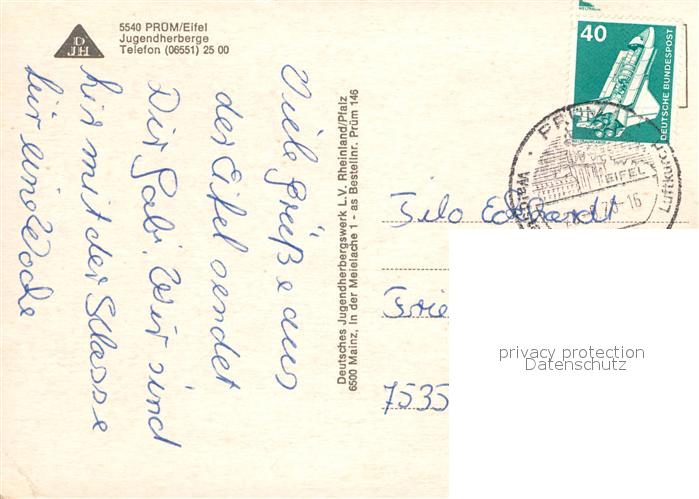 D
JH
5540 PRÜM/Eifel
Jugendherberge
Telefon (06551) 25 00
Viele Grüße aus
der Eifel sendet
Dir Gabi. Wir sind
hir mit der Classe
für eine Woche
Deutsches Jugendherbergswerk L.V. Rheinland/Pfalz
6500 Mainz, In der Meielache 1 - as Bestellnr. Prüm 146
40
DEUTSCHE BUNDESPOST
PRÜM
EIFEL
Luftkur
-16
Tilo Eckhardt
Frie
7535
privacy protection
Datenschutz